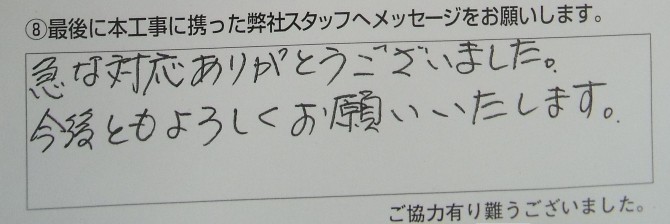 ⑧最後に本工事に携った弊社スタッフへメッセージをお願いします。
急な対応ありがとうございました。
今後ともよろしくお願いいたします。
ご協力有り難うございました。